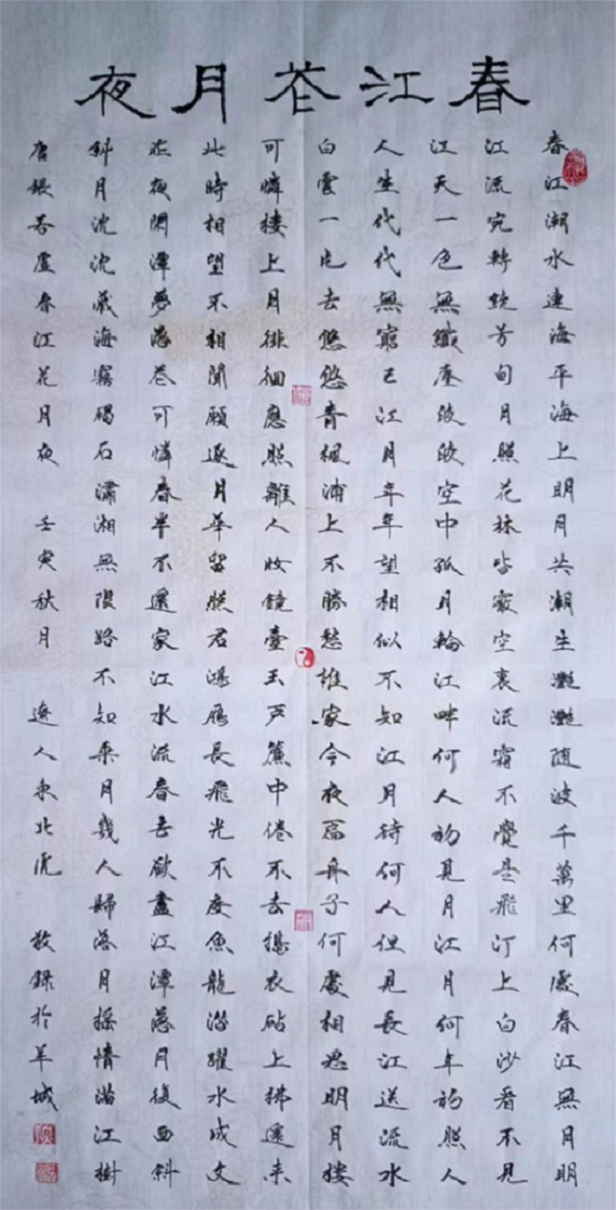 春江花月夜
春江潮水連海平海上明月共潮生灧灧随波千萬里何處春江無月明
江流宛轉繞芳甸月照花林皆霰空裏流霜不覺是飛汀上白沙看不見
江天一色無纖塵皎皎空中孤月輪江畔何人初見月江月何年初照人
人生代代無窮已江月年年望相似不知江月待何人但見長江送流水
白雲一片去悠悠青楓浦上不勝愁誰家今夜扁舟子何處相思明月樓
可憐樓上月徘徊應照離人妝鏡臺玉戶簾中倦不去搗衣砧上拂還来
此時相望不相聞願逐月華留照君鴻雁長飛光不度魚龍潛躍水成文
昨夜閑潭夢落花可憐春半不還家江水流春去欲盡江潭落月復西斜
斜月沈沈藏海霧碣石瀟湘無限路不知乘月幾人歸落月摇情滿江樹
唐張若虛春江花月夜 壬寅秋月 遼人東北虎 敬録於羊城